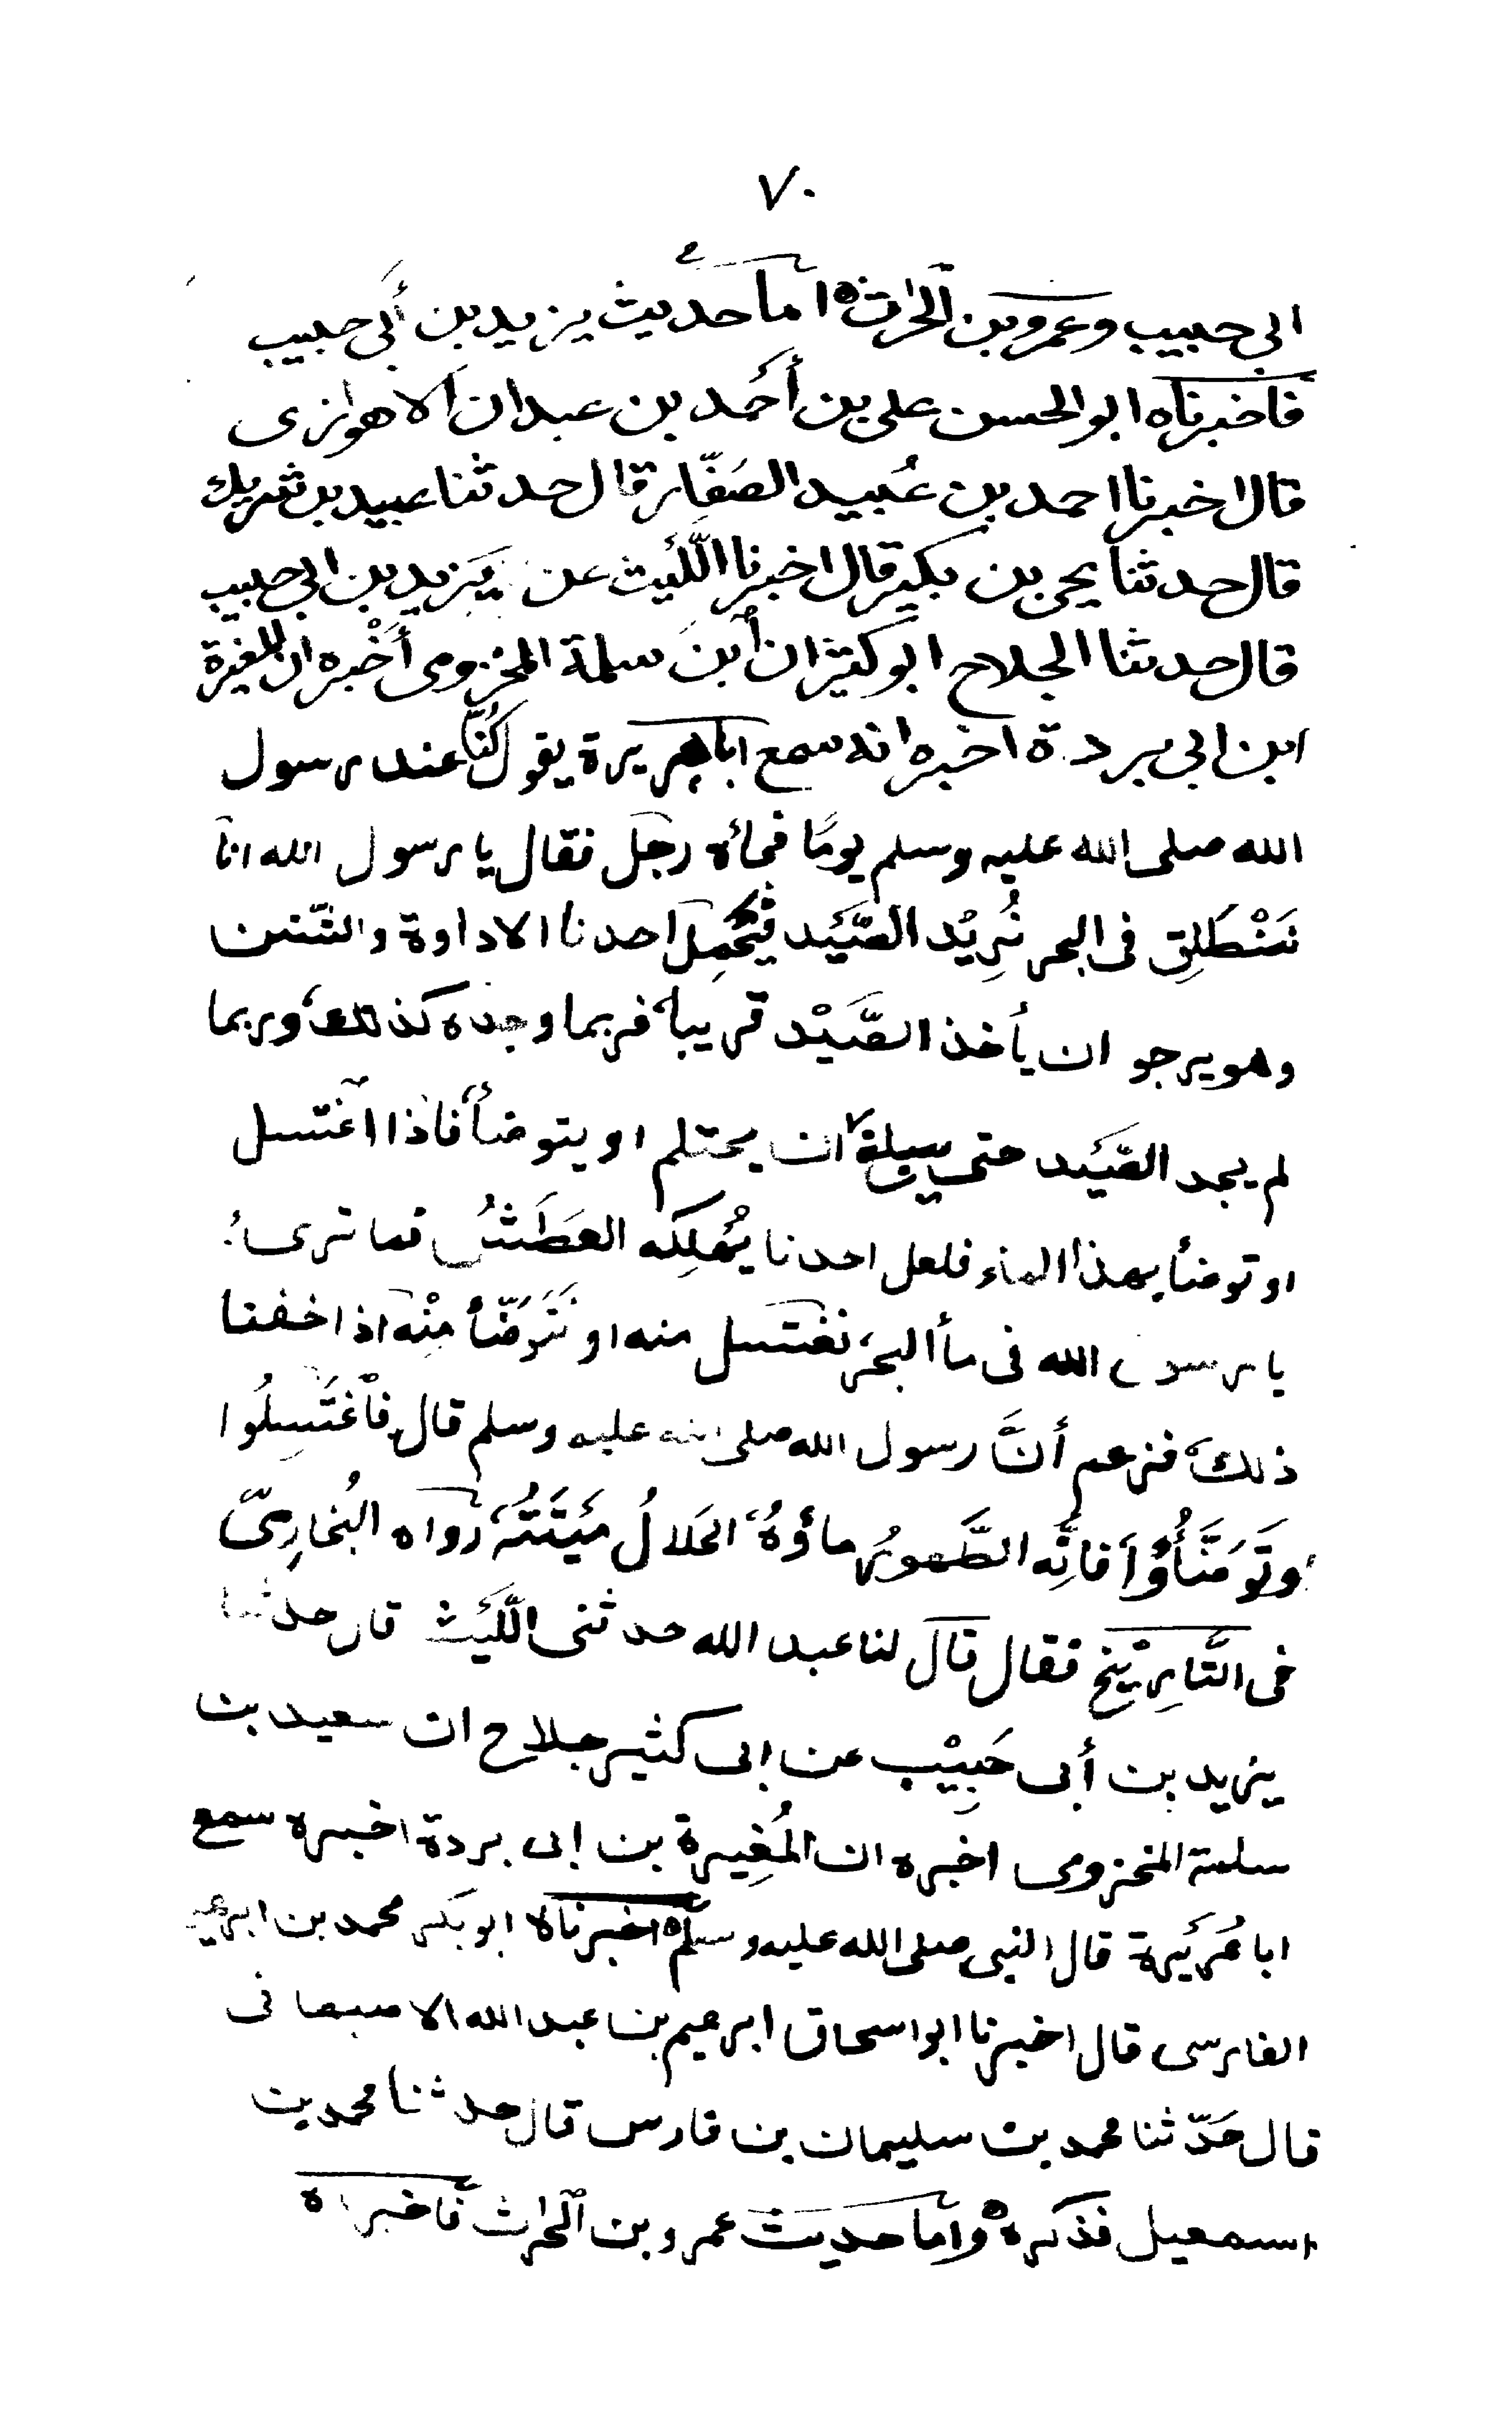 ٧٠
ابي حبيب وعمرو بن الحٰرث ه اما حديث يزيد بن أبي حبيب
فاخبرناه ابو الحسن علي بن أحَمد بن عبدان الاهوازى
قال اخبرنا احمد بن عُبيد الصَفّار قال حدثنا عبيد بن شريك
قال حدثنا يحيى بن بكير قال اخبرنا اللَّيْث عن يَزيد بن ابي حبيب
قال حدثنا الجلاح ابو كثير ان ابن سلمة المخزومى أَخْبره ان المغيرة
ابن ابي بردة اخبره انه سمع ابا هريرة يقول كُنّا عند رسول
الله صلى الله عليه وسلم يومًا فجاءه رجل فقال يا رسول الله انا
نَنْطَلِق فى البحر نُرِيْد الصَّيْد فيَحْمِل احدنا الاداوة والثنتين
وهو يرجو ان يأخذ الصَّيْد قريباً فربما وجده كذلك، وربما
لم يجد الصَّيْد حتى يبلغ ان يحتلم او يتوضأ فاذا اغتسل
او توضأ بهذا الماء فلعل احدنا يُهلِكه العَطَشُ فما ترى
يا رسول الله فى مأ البحر نغتسل منه او نَتَوَضّأ مِنْه اذا خفنا
ذلك فزعم أنَّ رسول الله صلى الله عليه وسلم قال فاْغتَسِلُوا
وتَوَضَّأُوْا فانَّه الطَّهورُ ماؤهُ، الحَلالُ مَيْتَتُهُ رَواه البُخارِىّ
فى التَّارِيْخ فقال قال لنا عبد الله حدثنى اللَّيْث قال حدثنا
يزيد بن أبى حَبِيْب عن ابى كثير جلاح ان سعيد بن
سلمة المخزومى اخبره ان المُغِيرة بن ابى بردة اخبره سمع
ابا هُرَيْرة قال النبى صلى الله عليه وسلم ه اخبرناه ابو بكر محمد بن ابرهيم
الفارسى قال اخبرنا ابو اسحاق ابرهيم بن عبد الله الاصبهانى
قال حَدّثنا محمد بن سليمان بن فارس قال حدثنا محمد بن
اسمعيل فذكره ه واما حديث عمرو بن الحٰرث فاخبرناه